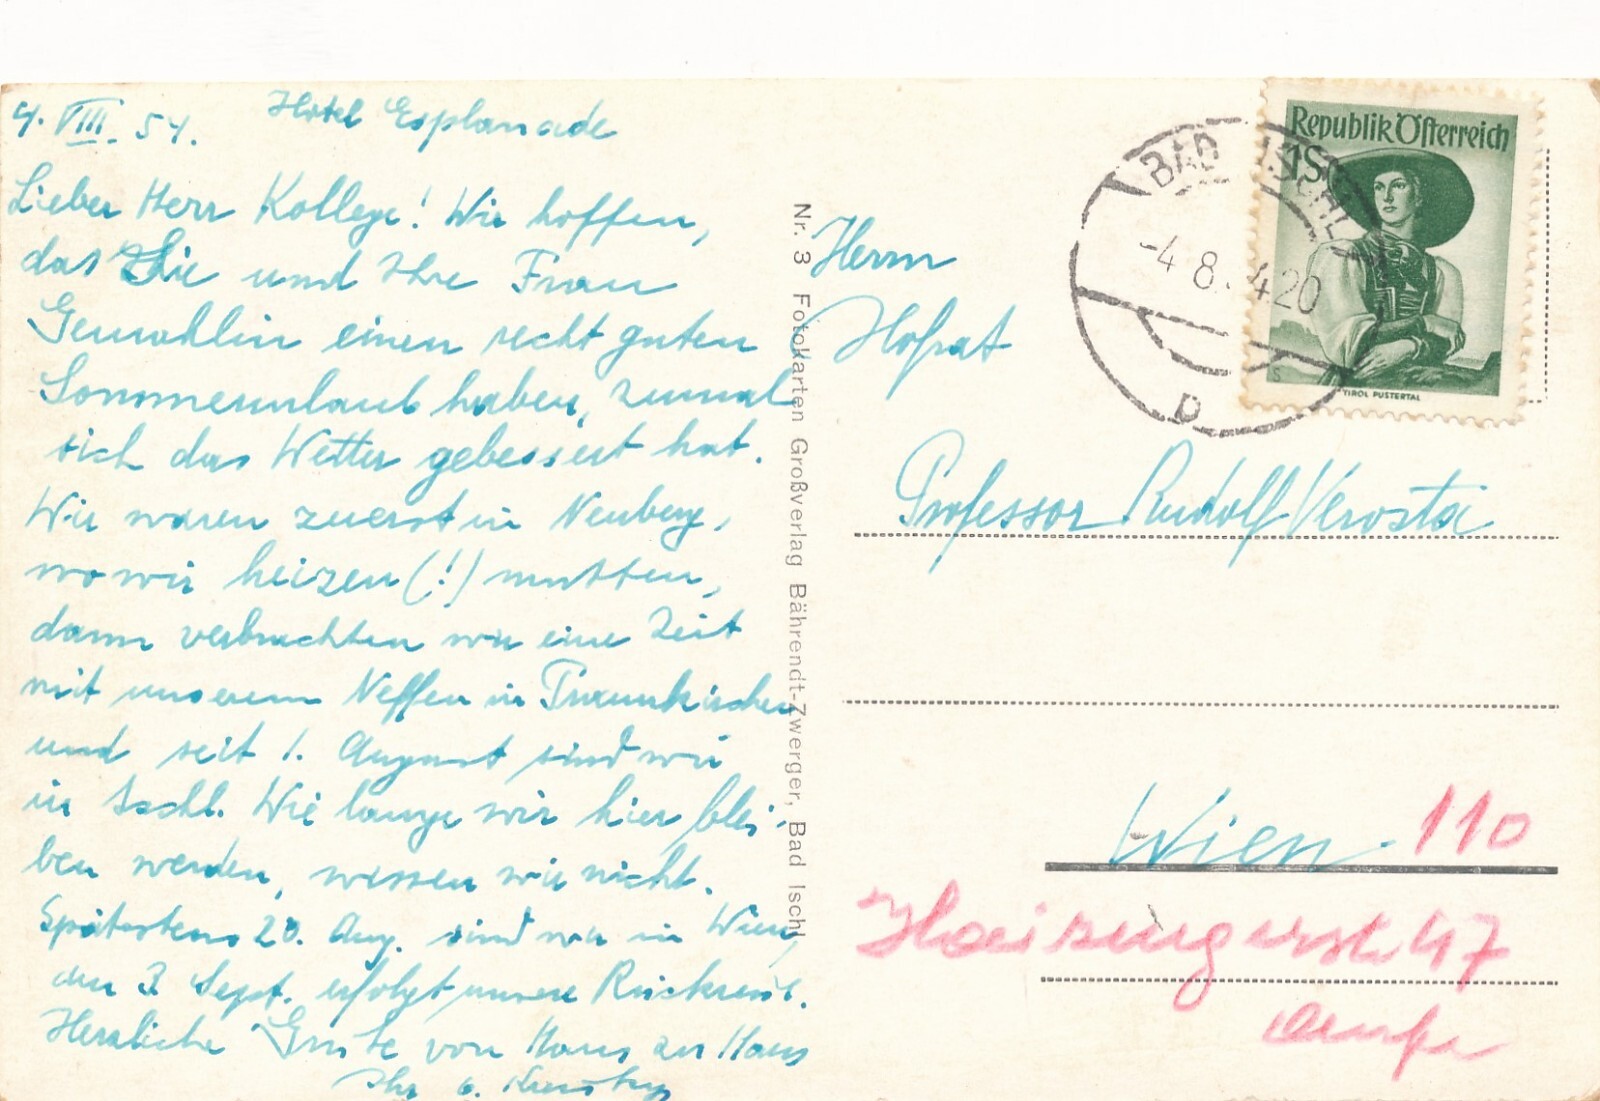 4. VIII. 54. Hotel Esplanade
Lieber Herr Kollege! Wir hoffen,
das Sie und Ihre Frau
Gemahlin einen recht guten
Sommerurlaub haben, zumal
sich das Wetter gebessert hat.
Wir waren zuerst in Neuberg,
wo wir heizen (!) mussten,
dann verbrachten wir eine Zeit
mit unserem Neffen in Traunkirchen
und seit 1. August sind wir
in Ischl. Wie lange wir hier blei-
ben werden, wissen wir nicht.
Spätestens 20. Aug. sind wir in Wien,
am 3. Sept. erfolgt unsere Rückreise.
Herzliche Grüße von Haus zu Haus
Ihr
Nr. 3 Fotokarten Großverlag Bährendt-Zwerger, Bad Ischl
Republik Österreich
1S
TIROL PUSTERTAL
BAD ISCHL
-4.8.54 20
D
Herrn
Hofrat
Professor Rudolf Verosta
Wien 110
47